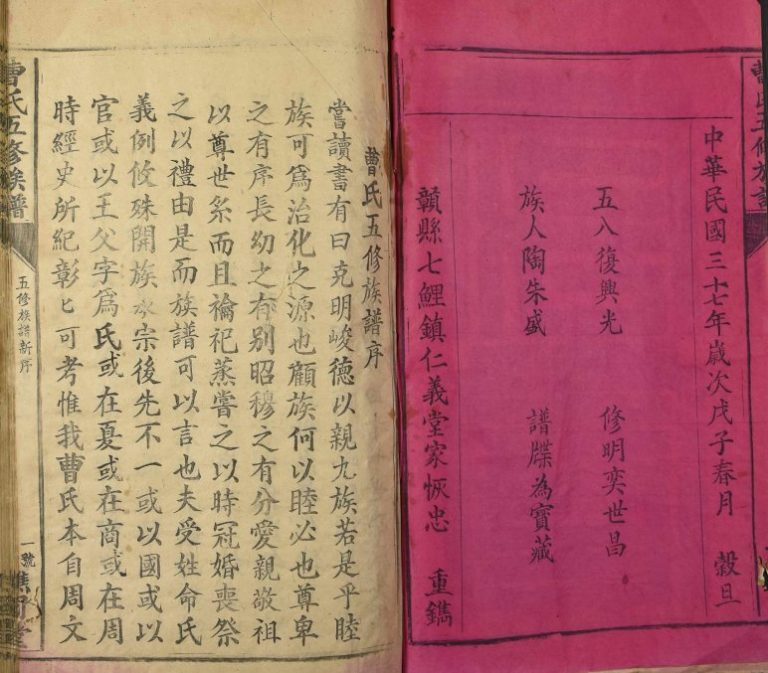 曹氏五修族譜
中華民國三十七年歲次戊子春月　穀旦
五八復興光　修明奕世昌
族人陶朱盛　譜牒為寶藏
贛縣七鯉鎮仁義堂家恢忠　重鐫
曹氏五修族譜序
嘗讀書有曰克明峻德以親九族若是乎睦
族可爲治化之源也顧族何以睦必也尊卑
之有序長幼之有別昭穆之有分愛親敬祖
以尊世系而且禴祀蒸嘗之以時冠婚喪祭
之以禮由是而族譜可以言也夫受姓命氏
義例攸殊開族承宗後先不一或以國或以
官或以王父字爲氏或在夏或在商或在周
時經史所紀彰匕可考惟我曹氏本自周文
曹氏五修族譜
五修族譜新序
一號
堂